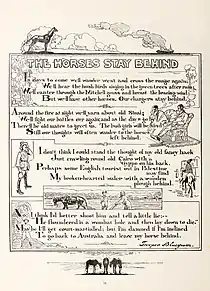 THE HORSES STAY BEHIND
In days to come we'll wander west and cross the range again;
We'll hear the bush birds singing in the green trees after rain;
We'll canter through the Mitchell grass and breast the bracing wind;
But we'll have other horses. Our chargers stay behind.
Around the fire at night we'll yarn about old Sinai;
We'll fight our battles o'er again; and as the days go by
There'll be old mates to greet us. The bush girls will be kind
Still our thoughts will often wander to the horses
left behind.
I don't think I could stand the thought of my old fancy hack
Just crawling round old Cairo with a
'Gyppo on his back.
Perhaps some English tourist out in Palestine
may find
My broken-hearted waler with a wooden
plough behind.
No: I think I'd better shoot him and tell a little lie:—
"He floundered in a wombat hole and then lay down to die."
Maybe I'll get court-martialed; but I'm damned if I'm inclined
To go back to Australia and leave my horse behind.